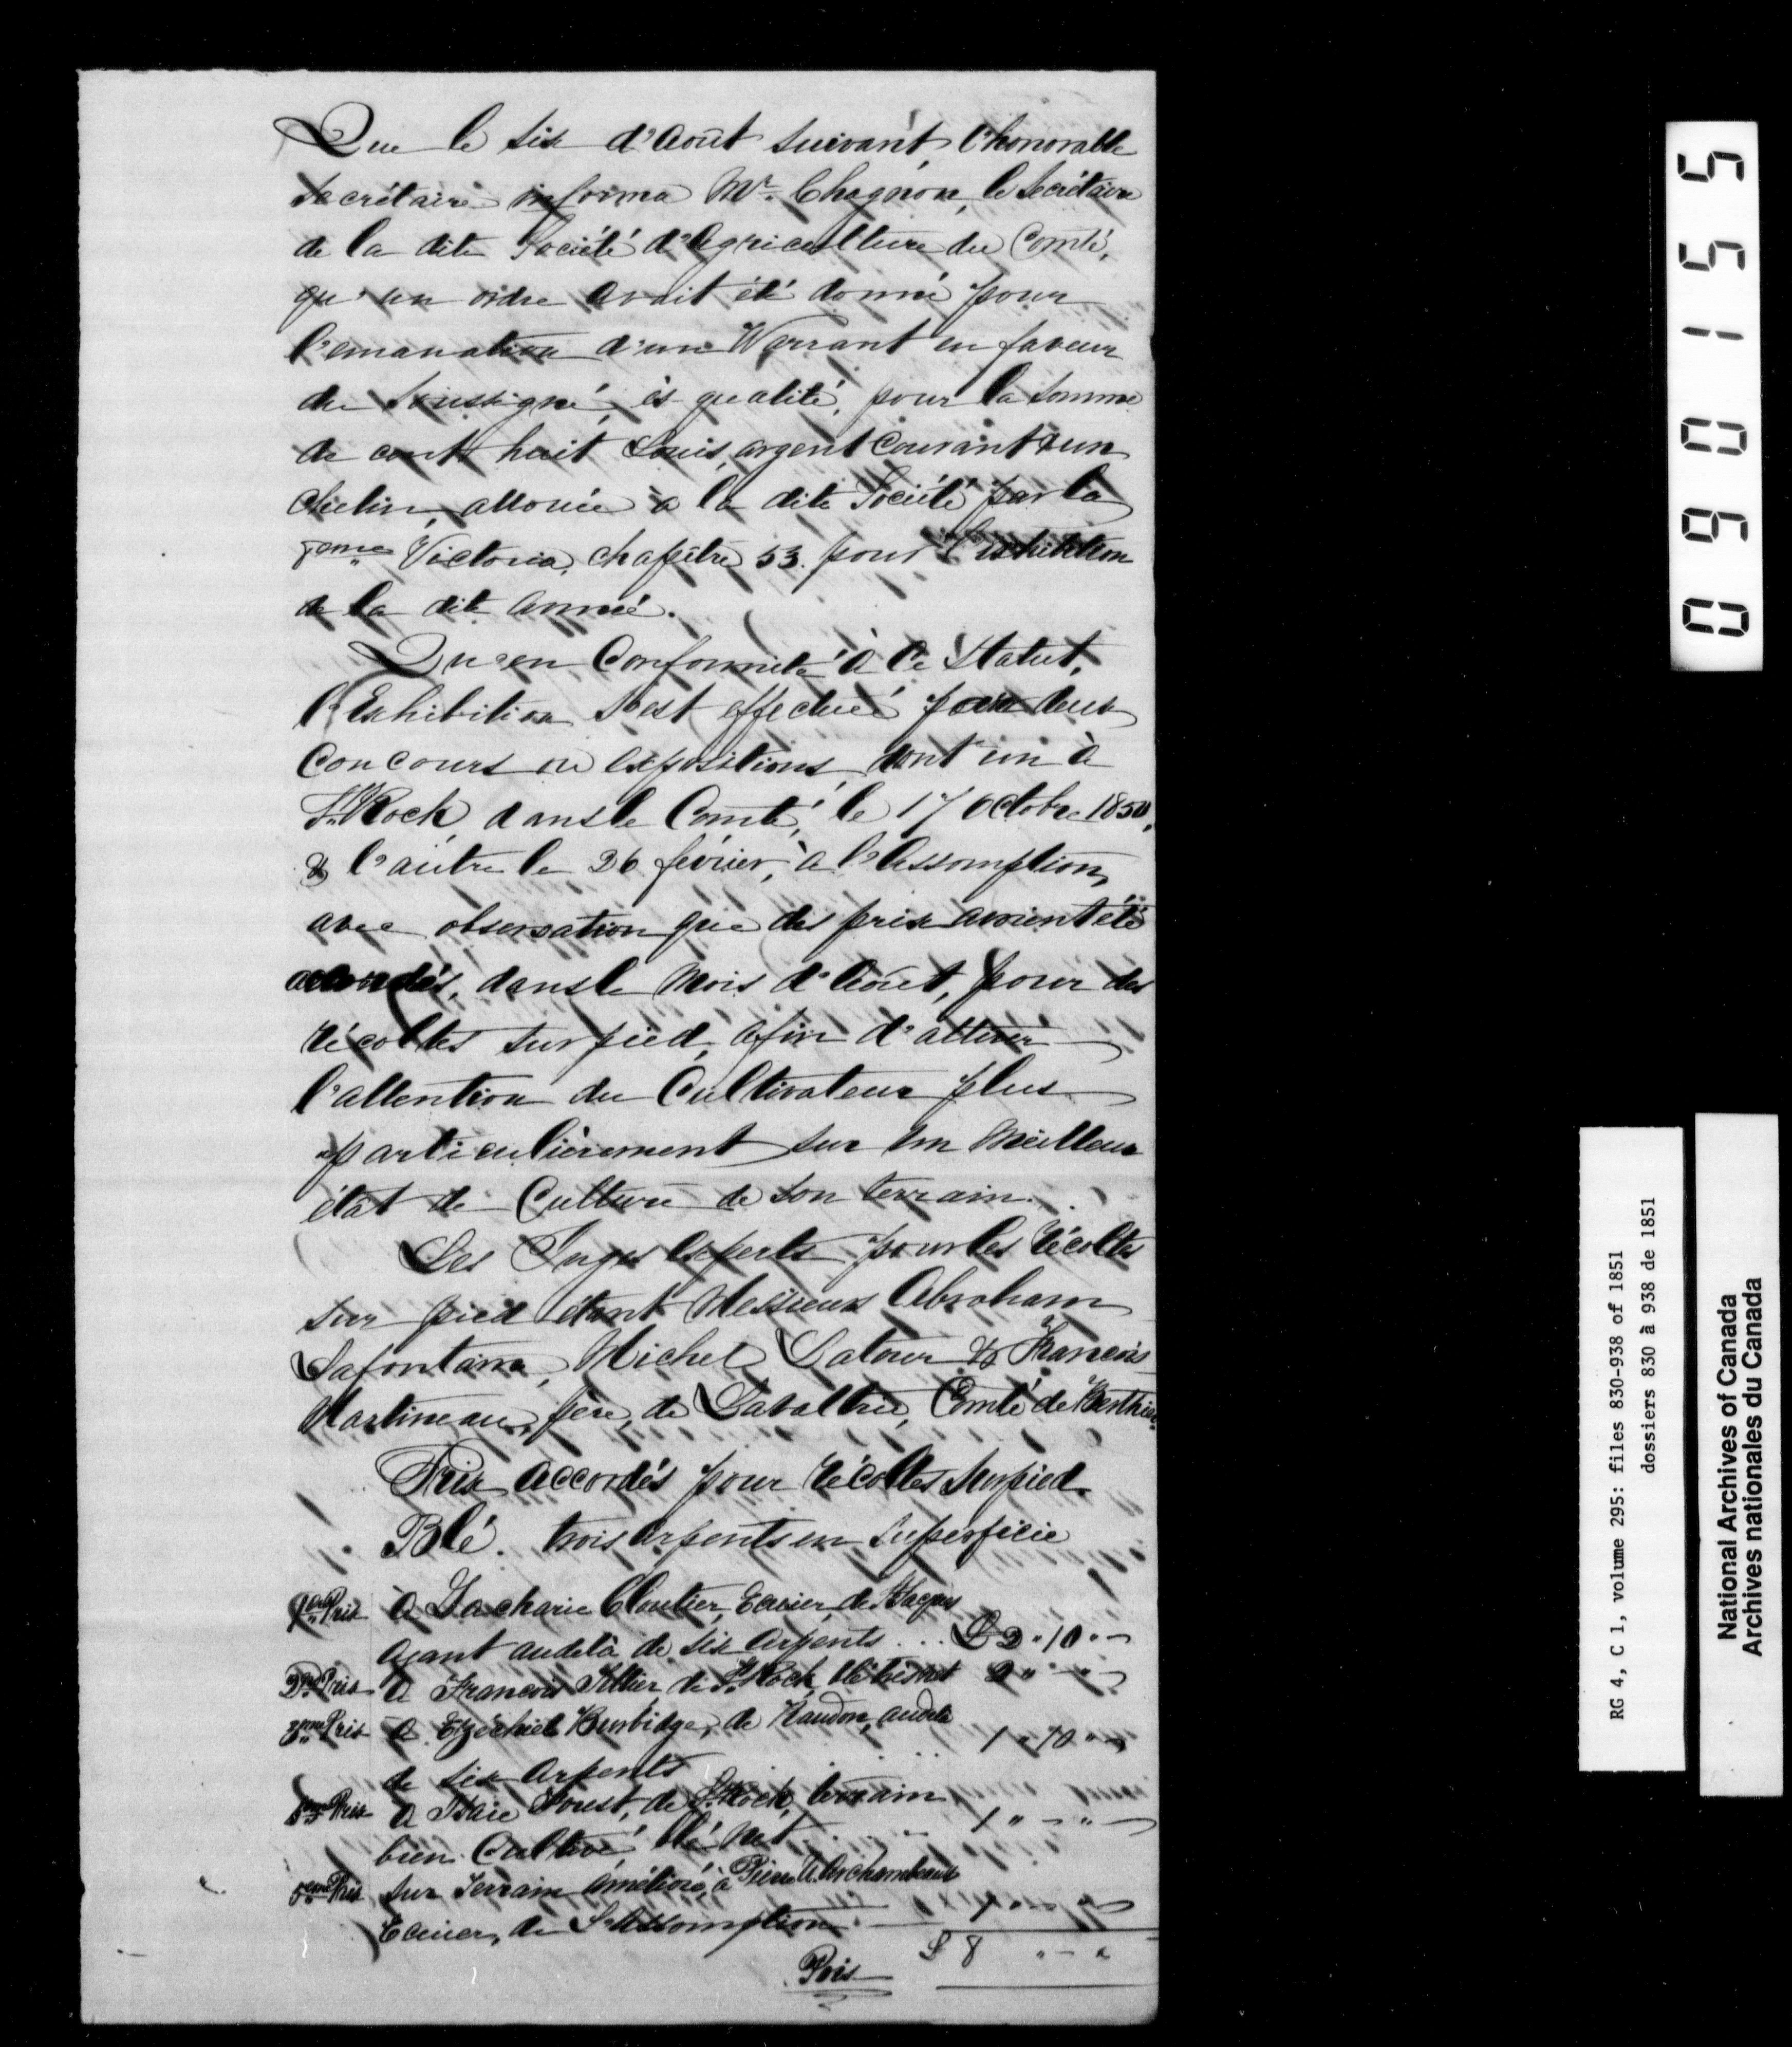 Que le six d'Août suivant, l'honorable
Secrétaire informa Mr. Chagnon, le Secrétaire
de la dite Société d'Agriculture du Comté,
qu'un ordre avait été donné pour
l'emanation d'un Warrant en faveur
du Soussigné, ès qualité, pour la Somme
de cent huit Louis, argent Courant & un
Chelin, allouée à la dite Société par la
8eme Victoria, chapître 53. pour l'Exhibition
de la dite année.
Qu'en Conformité à ce Statut,
l'Exhibition s'est effectuée par deux
Concours ou expositions, dont un à
St. Roch, dans le Comté, le 17 Octobre 1850,
& l'autre le 26 février, à l'Assomption,
avec observation que des prix avoient été
accordés, dans le mois d'Août, pour des
récoltes sur pied, afin d'attirer
l'attention du Cultivateur plus
particulièrement sur un meilleur
état de Culture de son terrain.
Les Juges Experts pour les récoltes
sur pied étant Messieurs Abraham
Lafontaine, Michel Latour & Francois
Martineau, père, de Lavaltrie, Comté de Berthier.
Prix accordés pour récoltes sur pied.
Blé. trois arpents en superficie
1er Prix A Zacharie Cloutier, Ecuier, de St Jacques
ayant audelà de six arpents . . . £ 2 " 10 " -
2me Prix A Francois Tellier de St. Roch, blé bien net 2 " - " -
3me Prix A Ezéchiel Burbidge, de Rawdon, audela
de six arpents . . . 1 " 10 " -
4me Prix A Isaie Foust, de St. Roch, terrain
bien Cultivé, blé Net . . . 1 " - " -
5eme Prix Sur Terrain amélioré, à Pierre U. Archambault
Ecuier, de L'Assomption 1 " - " -
£ 8 " - "
Pois
0 9 0 1 5 5
RG 4, C 1, volume 295: files 830-938 of 1851
dossiers 830 à 938 de 1851
National Archives of Canada
Archives nationales du Canada